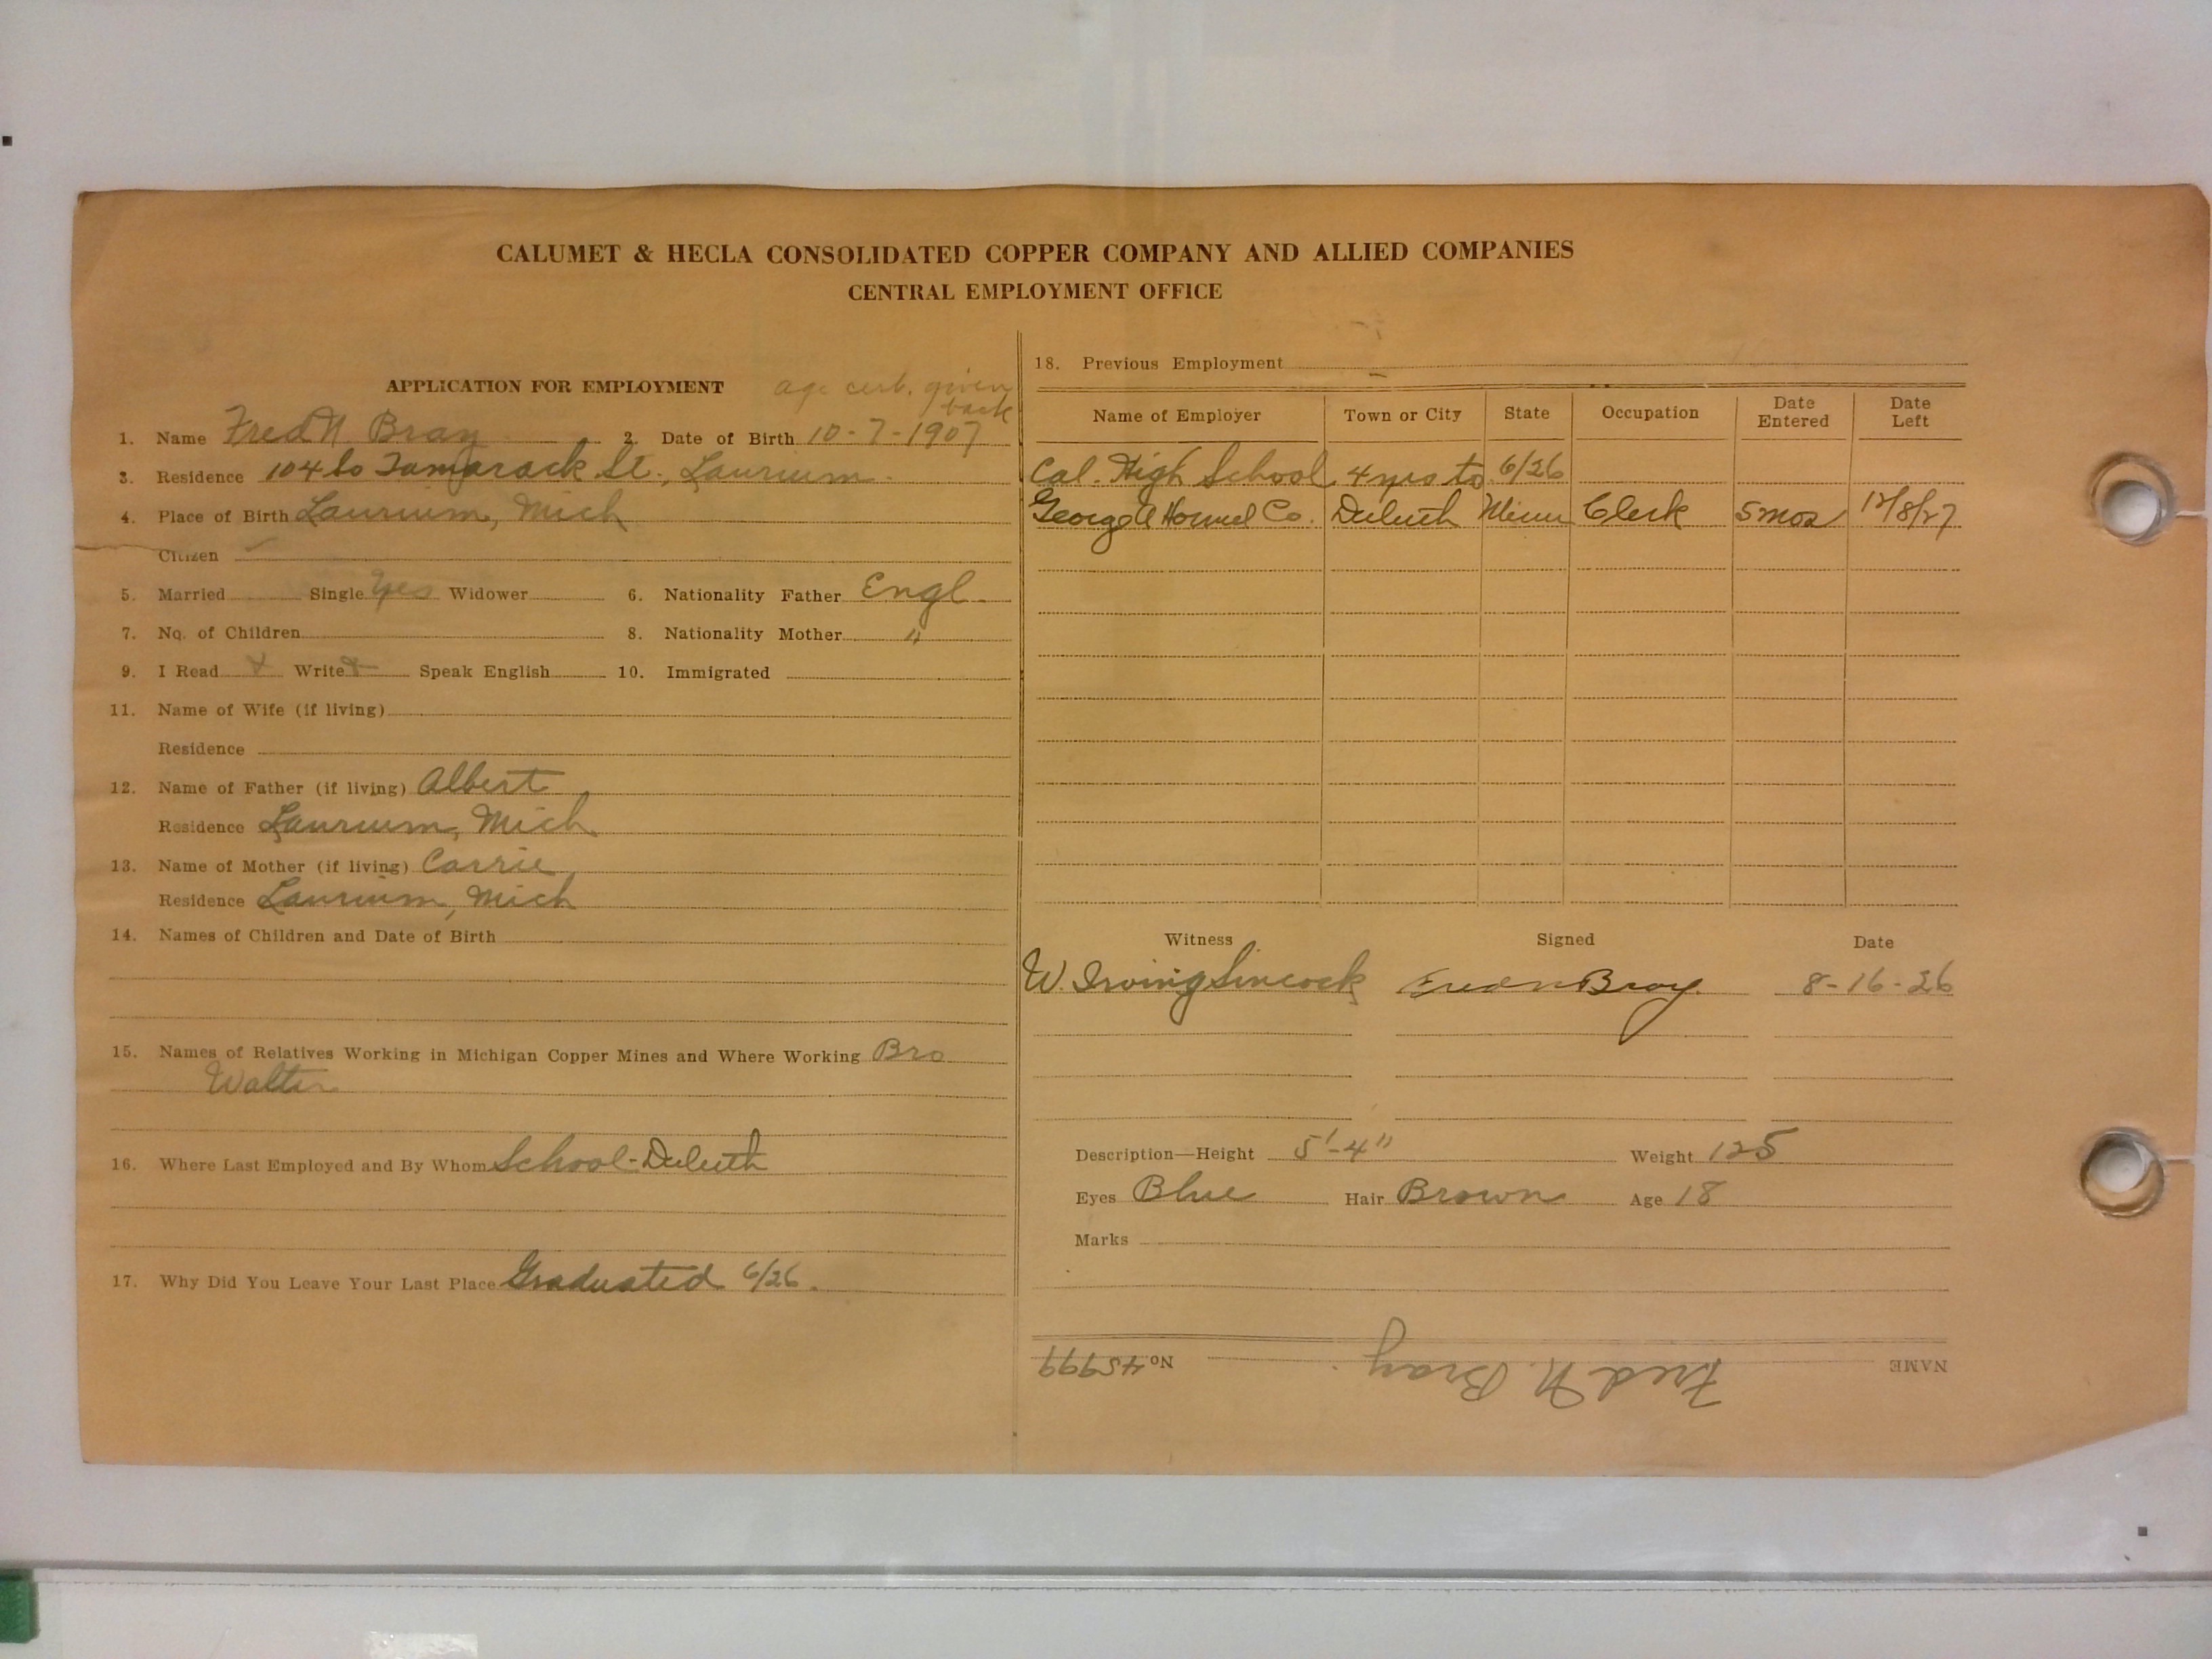 CALUMET & HECLA CONSOLIDATED COPPER COMPANY AND ALLIED COMPANIES
CENTRAL EMPLOYMENT OFFICE
APPLICATION FOR EMPLOYMENT age cert. given
back
1. Name Fred N. Bray 2. Date of Birth 10-7-1907
3. Residence 104 So Tamarack St., Laurium.
4. Place of Birth Laurium, Mich
Citizen ✓
5. Married Single Yes Widower 6. Nationality Father Engl.
7. No. of Children 8. Nationality Mother "
9. I Read x Write x Speak English 10. Immigrated
11. Name of Wife (if living)
Residence
12. Name of Father (if living) Albert
Residence Laurium, Mich
13. Name of Mother (if living) Carrie
Residence Laurium, Mich
14. Names of Children and Date of Birth
15. Names of Relatives Working in Michigan Copper Mines and Where Working Bro
Walter
16. Where Last Employed and By Whom School-Duluth
17. Why Did You Leave Your Last Place Graduated 6/26.
18. Previous Employment
Name of Employer Town or City State Occupation Date Entered Date Left
Cal. High School 4 yrs to 6/26
George A Hormel Co. Duluth Minn Clerk 5 mos 12/8/27
Witness Signed Date
W. Irving Sincock Fred N Bray 8-16-26
Description—Height 5'-4" Weight 125
Eyes Blue Hair Brown Age 18
Marks
NAME Fred N. Bray No. 45999